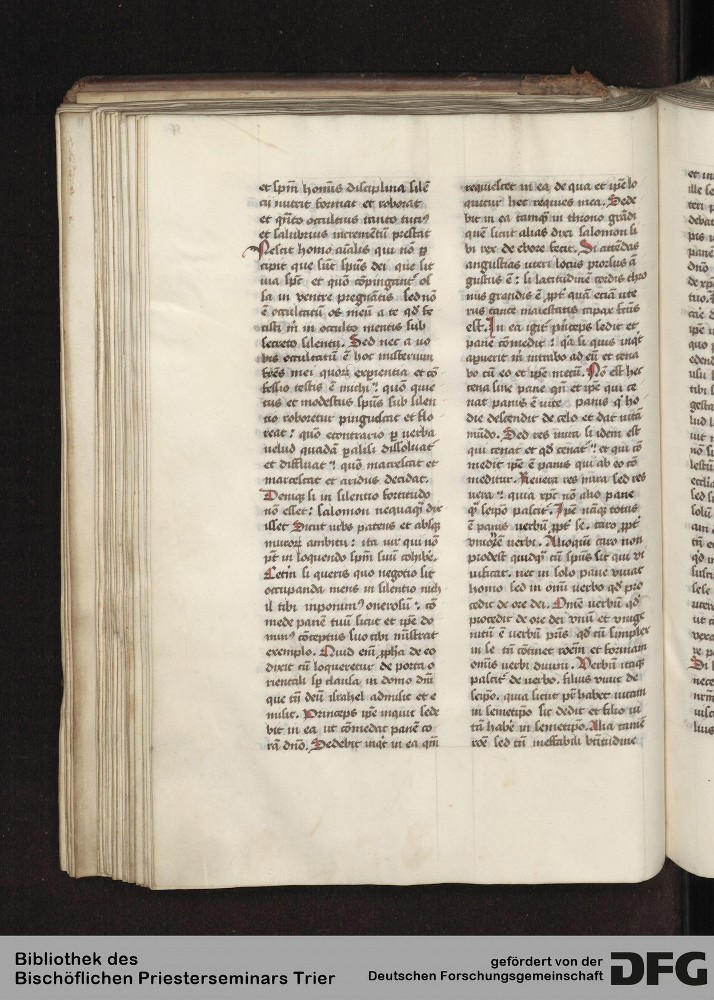 et spm̄ homīs disciplina silē
cij nutrit format et roborat
et qn̄to occultius tanto tuti9
et salubrius incrementū prestat
Nescit homo aīalis qui nō ꝑ
cipit que sūt spūs dei que sit
uia spūs et quō cōpingant᷑ os
sa in ventre pregnātis sed nō
ē occultatū os meū a te qd fe
cisti m̄ in occulto mentis sub
secreto silentij. Sed nec a uo
bis occultatū ē hoc misterium
frēs mei quorꝝ experientia et cō
fessio testis ē michi: quō quie
tus et modestus spūs sub silen
tio roboretur pinguescat et flo
reat: quō econtrario ꝑ uerba
uelud quadā ꝑalisi dissoluat᷑
et diffluat: quō macrescat et
marcescat et aridus decidat.
Deniqꝫ si in silentio fortitudo
nō esset: salomon nequaqꝫ dix
isset Sicut urbs patens et absqꝫ
murorꝝ ambitu: ita uir qui nō
pt̄ in loquendo spm̄ suū cohibē.
Cetīn si queris quo negotio sit
occupanda mens in silentio nich
il tibi inponim9 onerosū: cō
mede panē tuū sicut et ip̄e do
min9 cōceptus suo tibi mīstrat
exemplo. Quid enī ꝓpha de eo
dixit cū loqueretur de porta o
rientali sꝑ clausa in domo dn̄i
que tn̄ deū israhel admisit et e
misit. Princeps ip̄e inquit sede
bit in ea ut cōmedat panē co
rā dn̄o. Sedebit inqt in ea qm̄
requiescet in ea de qua et ip̄e lo
quitur hec requies mea. Sede
bit in ea tamqꝫ in throno grādi
quē sicut alias dixi salomon si
bi rex de ebore fecit. Si attēdas
angustias uteri locus prorsus ā
gustus ē: si latitudinē cordis thro
nus grandis ē ꝓpt᷑ quā etiā ute
rus tante maiestatis capax fctūs
est. In ea igit᷑ princeps sedit et
panē cōmedit: q̄a si quis inqt
apuerit m̄ intrabo ad eū et cena
bo cū eo et ip̄e mecū. Nō est hec
cena sine pane qn̄ et ip̄e qui ce
nat panis ē uite panis q̄ ho
die descendit de celo et dat uitā
mūdo. Sed res mira si idem est
qui cenat et qd cenat᷑: et qui cō
medit ip̄e ē panis qui ab eo cō
meditur. Reuera res mira sed res
uera: quia xp̄c nō alio pane
qꝫ seip̄o pascit. Ip̄e nāqꝫ totus
ē panis uerbū ꝓpt᷑ se. caro ꝓpt᷑
vnionē uerbi. Alioqui caro non
prodest quidqꝫ cū spūs sit qui vi
uificat. nec in solo pane viuat
homo sed in omī uerbo qd pro
cedit de ore dei. Omē uerbū qd
procedit de ore dei vnū et vnige
nitū ē uerbū pris qd cū simplex
in se tn̄ cōtinet roēm et formam
omīs uerbi diuini. Verbū itaqꝫ
pascit᷑ de uerbo. filius viuit de
seip̄o. quia sicut pr̄ habet uitam
in semetip̄o sic dedit et filio ui
tā habē in semetip̄o. Alia tamē
roē sed tn̄ ineffabili bt̄itudine
Bibliothek des
Bischöflichen Priesterseminars Trier
gefördert von der
Deutschen Forschungsgemeinschaft
DFG